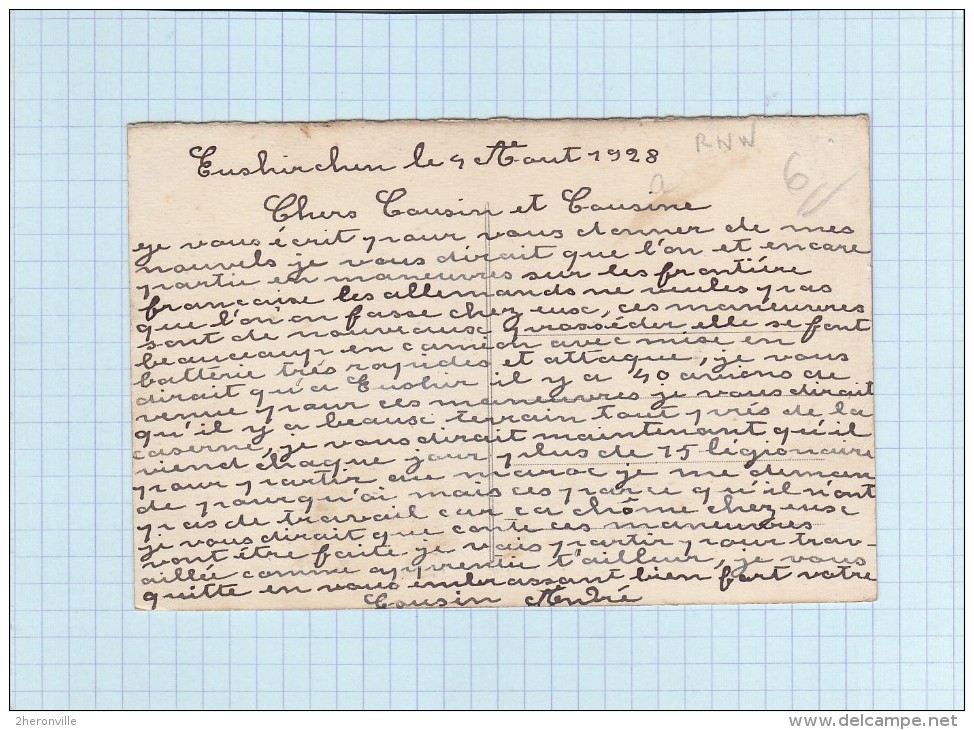 Euskirchen le 4 Aout 1928
RNW
Chers Cousin et Cousine
je vous écrit pour vous donner de mes
nouvels je vous dirait que l'on et encore
partie en maneuvres sur les frontiére
française les allemands ne veules pas
que l'on on fasse chez eux, ces maneuvres
sont de nouveaux posséder elle se font
beaucoup en camion avec mise en
batterie trés rapides et attaque, je vous
dirait qu'a Euskir il y a 40 avions de
venue pour ces maneuvres je vous dirait
qu'il y a beaux terrain tout prés de la
caserne, je vous dirait maintenant qu'il
viend chaque jour plus de 15 légionaire
pour partir au maroc je me deman
de pourqu'ai mais ces parce qu'il n'ont
pas de travail car ca chôme chez eux
je vous dirait que conte ces maneuvres
vont être faite je vais partir pour trav-
aillée comme apprentie tailleur, je vous
quitte en vous embrassant bien fort votre
Cousin André
2heronville
www.delcampe.net